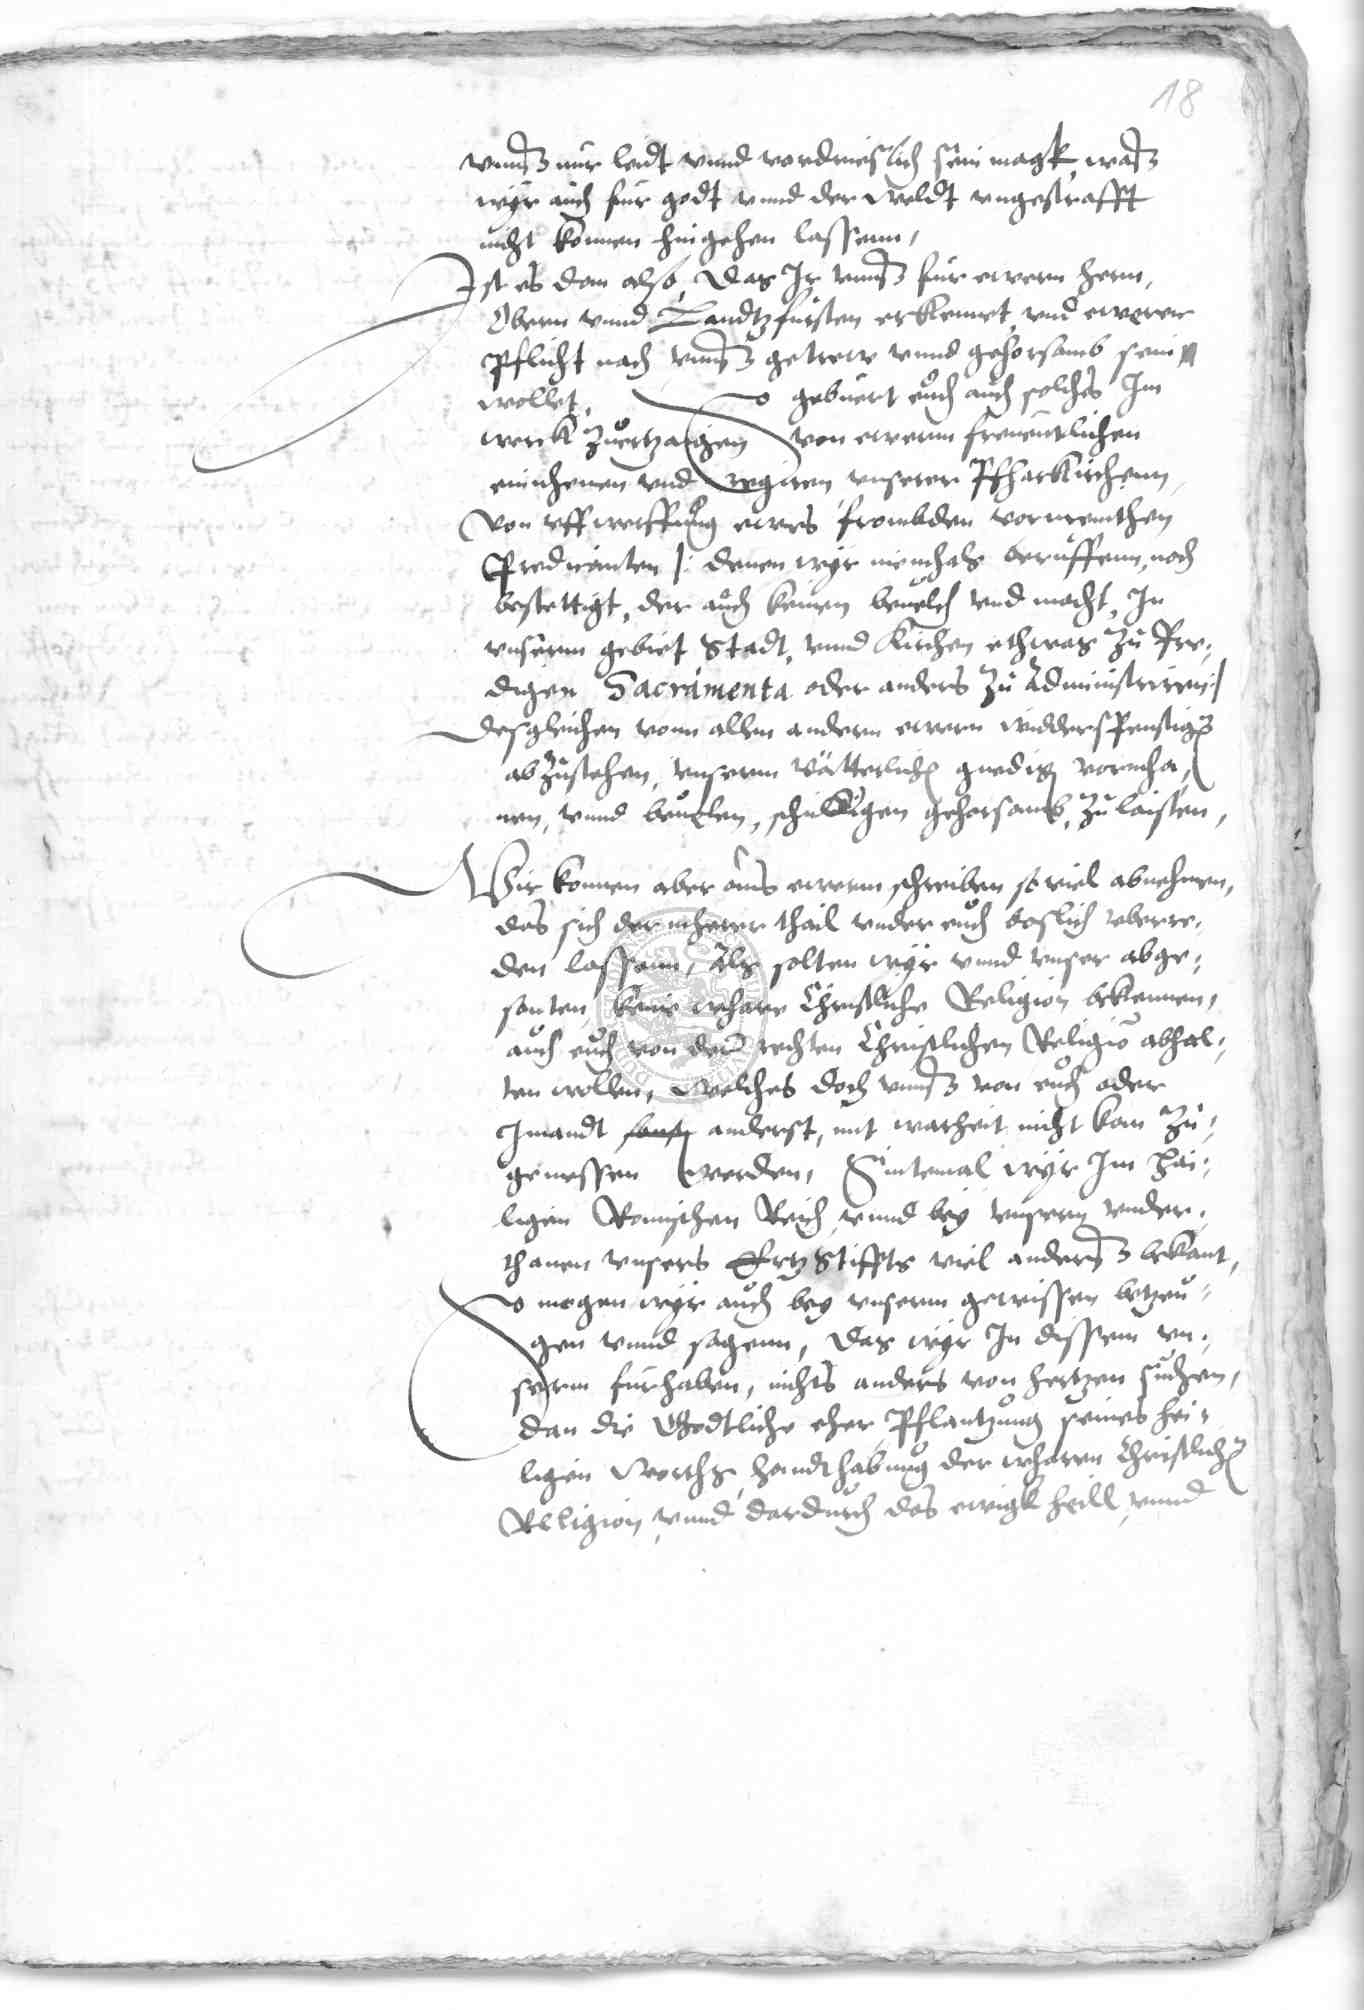 18
vnnß nur leidt vnnd vordrieslich sein magk, waß
wyr auch fur godt vnnd der weldt vngestrafft
nicht konnen hingehen lassenn,
Ist es dan also, Das Ir vnnß fur ewern hern,
Obern vnnd Landtzfursten erkennet, vnd ewerer
Pflicht nach vnnß getrew vnnd gehorsamb sein
wollet, So geburt euch auch solches Im
werck zuertzaigen von ewerm freuentlichen
einnhemen vnd regiren vnserer Pfharkirchenn,
Von vffwerffung ewers frombden vormeinthen
Predicanten /: denen wyr niemhals beruffenn, noch
bestettigt, der auch keinen beuelch vnd macht, In
vnserm gebiet Stadt, vnnd Kirchen ethwas zu Pre-
digen Sacramenta oder anders zu Administriren :/
Desgleichen vonn allen andern ewern widderspenstig
abzustehen, vnserm vätterlich gnedig vormha-
nen, vnnd beuelen, schuldigen gehorsamb, zu laisten,
Wir konnen aber aus ewerm schreiben so viel abnehmen,
das sich der mherer thail vnder euch boslich vberre-
den lassenn, Als solten wyr vnnd vnser abge-
santen, keine whare Christliche Religion bekennen,
auch euch von der rechten Christlichen Religio abhal-
ten wollen, Welches doch vnnß von euch oder
Imandt sonst anderst, mit warheit nicht kan zu-
gemessen werden, Sintemal wyr Im hai-
ligen Romischen Reich vnnd bey vnsern vnder-
thanen vnsers Ertz Stiffts viel anderß bekant,
So mogen wyr auch bey vnserm gewissen betzeu-
gen vnnd sagenn, Das wyr In dissem vn-
serm furhaben, nichts anders von hertzen suchen,
dan die Godtliche eher, Pflantzung seines hei-
ligen Worths, handthabung der wharen Christlich
Religion, vnnd dardurch das ewigk heill, vnnd